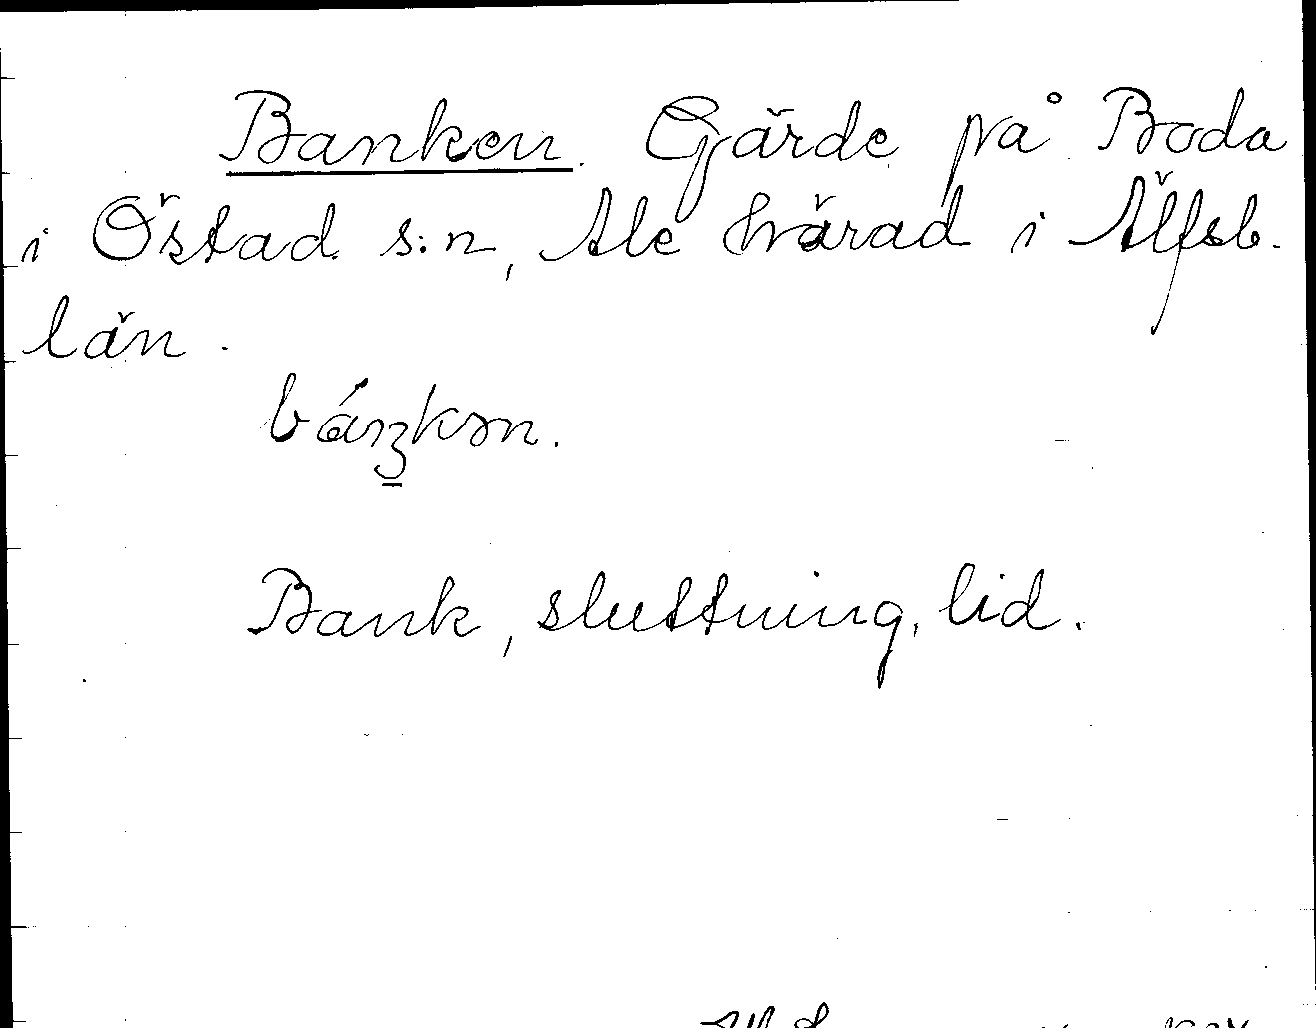 Banken. Gärde på Boda
i Östad s:n, Ale härad i Älfsb.
län.
báŋkən.
Bank, sluttning, lid.